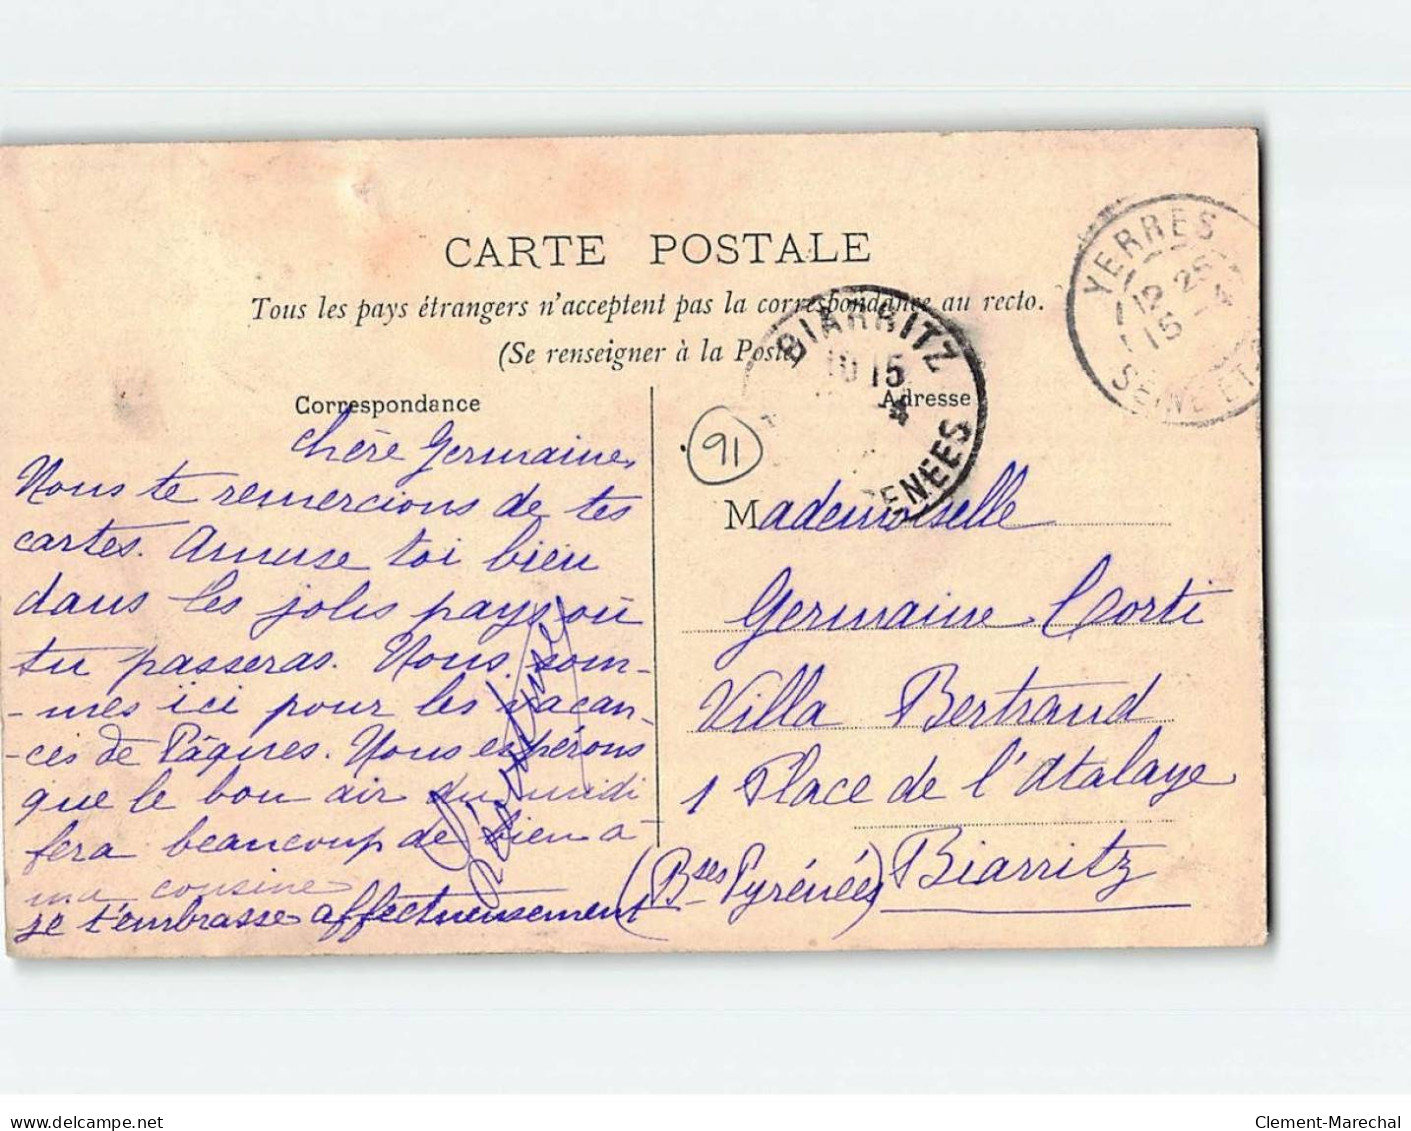 CARTE POSTALE
Tous les pays étrangers n'acceptent pas la correspondance au recto.
(Se renseigner à la Poste)
Correspondance
Adresse
YERRES
12 25
15 - 4
SEINE ET
BIARRITZ
10 15
ENEES
91
Chère Germaine,
Nous te remercions de tes
cartes. Amuse toi bien
dans les jolis pays où
tu passeras. Nous som-
-mes ici pour les vacan-
-ces de Pâques. Nous espérons
que le bon air du midi
fera beaucoup de bien à
ma cousine
je t'embrasse affectueusement
Mademoiselle
Germaine Corti
Villa Bertrand
1 Place de l'Atalaye
Biarritz
(Bses Pyrénées)
www.delcampe.net
Clement-Marechal